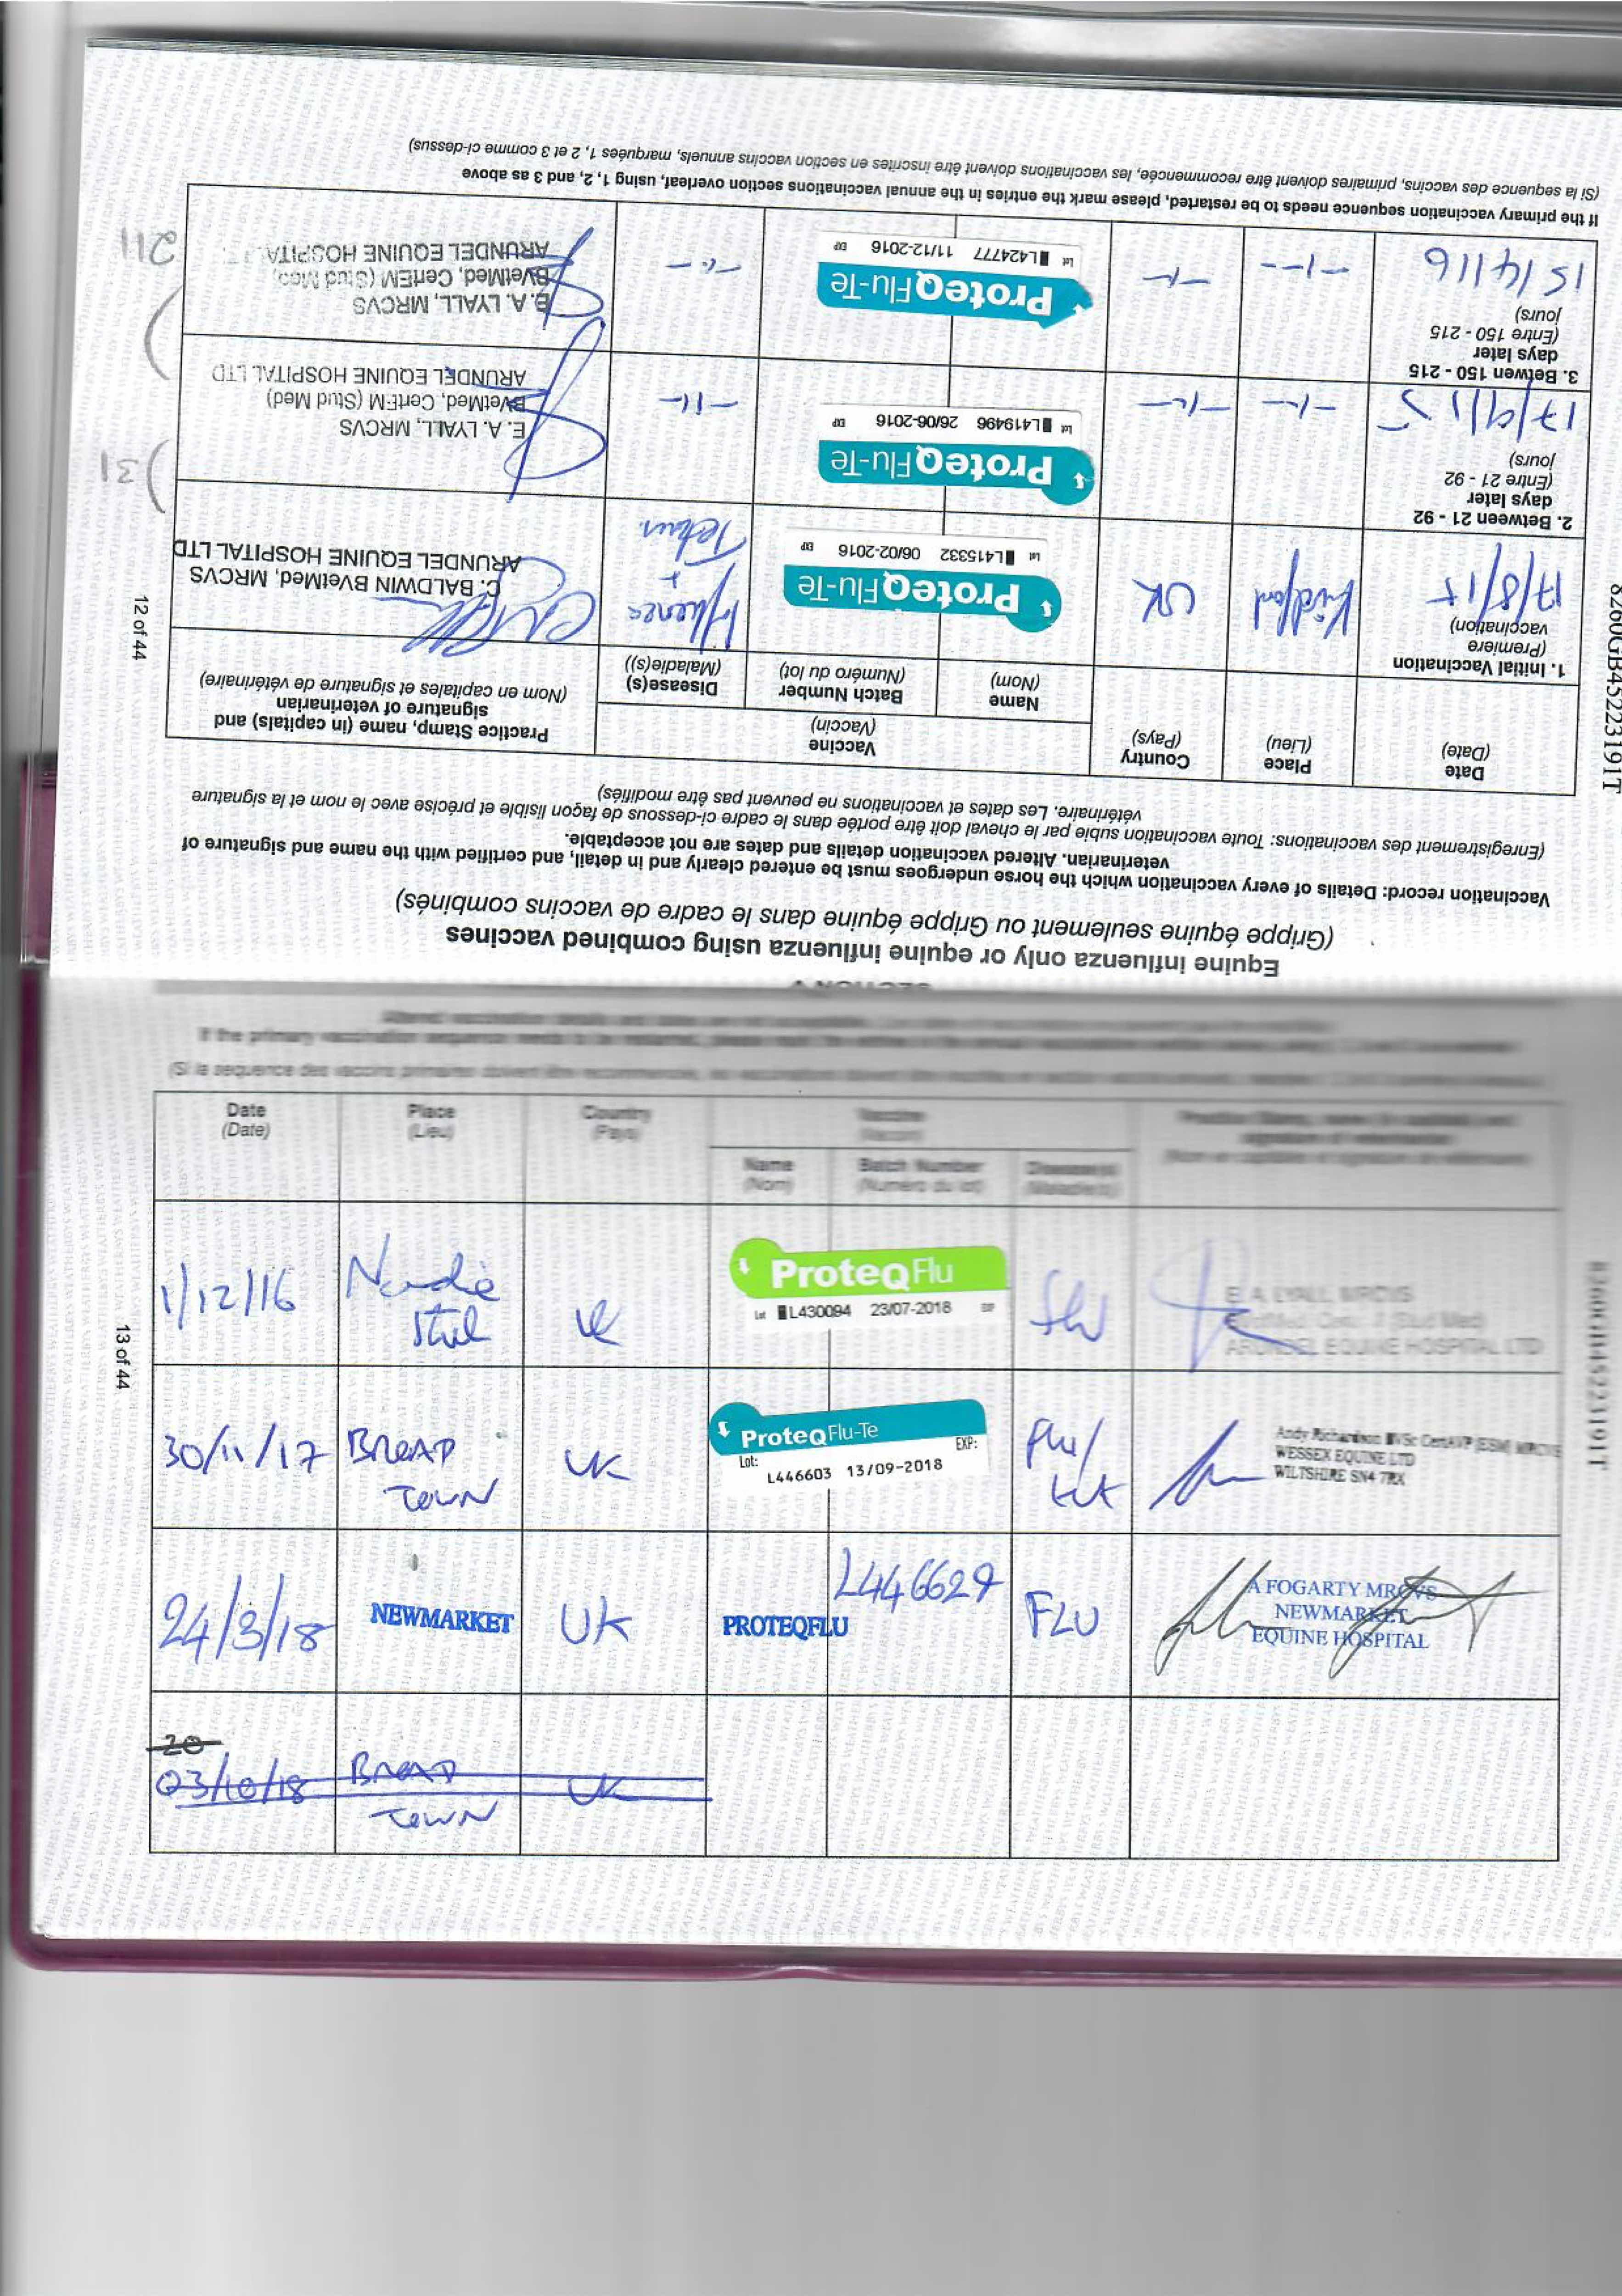 SECTION A
Equine influenza only or equine influenza using combined vaccines
(Grippe équine seulement ou Grippe équine dans le cadre de vaccins combinés)
Vaccination record: Details of every vaccination which the horse undergoes must be entered clearly and in detail, and certified with the name and signature of
veterinarian. Altered vaccination details and dates are not acceptable.
(Enregistrement des vaccinations: Toute vaccination subie par le cheval doit être portée dans le cadre ci-dessous de façon lisible et précise avec le nom et la signature
vétérinaire. Les dates et vaccinations ne peuvent pas être modifiées)
Date
(Date)
Place
(Lieu)
Country
(Pays)
Vaccine
(Vaccin)
Name
(Nom)
Batch Number
(Numéro du lot)
Disease(s)
(Maladie(s))
Practice Stamp, name (in capitals) and
signature of veterinarian
(Nom en capitales et signature de vétérinaire)
1. Initial Vaccination
(Premiere
vaccination)
17/8/15
Kirdford
UK
ProteqFlu-Te
Lot L415332 06/02-2016 EXP
Influenza
+
Tetanus.
C. BALDWIN BVetMed, MRCVS
ARUNDEL EQUINE HOSPITAL LTD
2. Between 21 - 92
days later
(Entre 21 - 92
jours)
17/9/15
-11-
-11-
ProteqFlu-Te
Lot L419496 26/06-2016 EXP
-11-
E. A. LYALL, MRCVS
BVetMed, CertEM (Stud Med)
ARUNDEL EQUINE HOSPITAL LTD
31
3. Betwen 150 - 215
days later
(Entre 150 - 215
jours)
15/4/16
-11-
-11-
ProteqFlu-Te
Lot L424777 11/12-2016 EXP
-11-
E. A. LYALL, MRCVS
BVetMed, CertEM (Stud Med)
ARUNDEL EQUINE HOSPITAL
211
If the primary vaccination sequence needs to be restarted, please mark the entries in the annual vaccinations section overleaf, using 1, 2, and 3 as above
(Si la sequence des vaccins, primaires doivent être recommencée, les vaccinations doivent être inscrites en section vaccins annuels, marquées 1, 2 et 3 comme ci-dessus)
12 of 44
8260GB45223191T
If the primary vaccination sequence needs to be
(Si la sequence des vaccins primaires doivent être
Date
(Date)
Place
(Lieu)
Country
(Pays)
Vaccine
(Vaccin)
Name
(Nom)
Batch Number
(Numéro du lot)
Disease(s)
(Maladie(s))
1/12/16
Stud
UK
ProteqFlu
Lot L430094 23/07-2018 EXP
Flu
E. A. LYALL, MRCVS
(Stud Med)
ARUNDEL EQUINE HOSPITAL LTD
30/11/17
BROAD
TOWN
UK
ProteqFlu-Te
Lot: EXP:
L446603 13/09-2018
Flu/
tet
Andy Richardson BVSc CertAVP (ESM) MRCVS
WESSEX EQUINE LTD
WILTSHIRE SN4 7RX
24/3/18
NEWMARKET
UK
PROTEQFLU
L446629
FLU
A FOGARTY MRCVS
NEWMARKET
EQUINE HOSPITAL
20
03/10/18
BROAD
TOWN
UK
13 of 44
8260GB45223191T